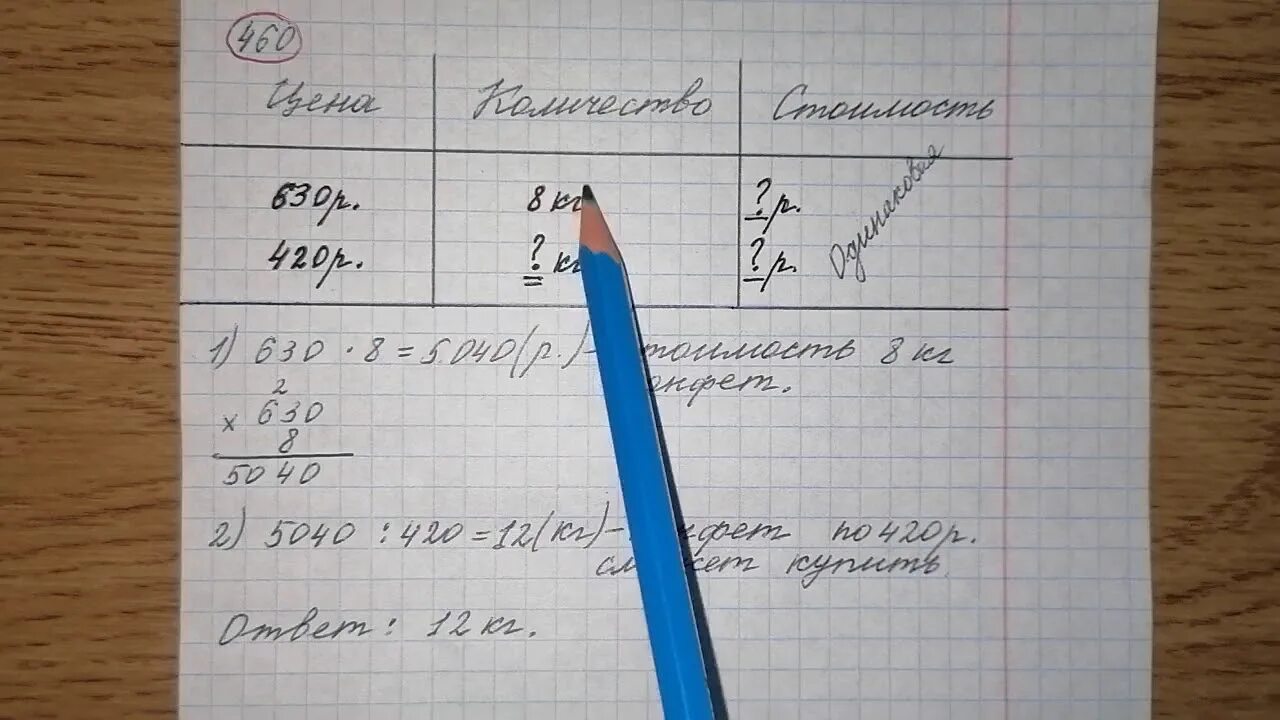 460
Цена Количество Стоимость
630р. 8 кг ? р.
420р. ? кг ? р.
Одинаковая
1) 630 · 8 = 5040 (р.) -
8 кг
2
× 630
8
5040
2) 5040 : 420 = 12 (кг) - по 420р.
купить
Ответ: 12 кг.